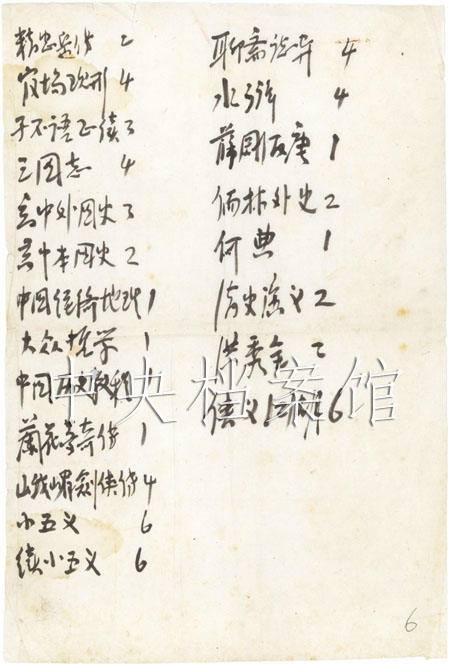 精忠岳传 2
官场现形 4
子不语正续 3
三国志 4
高中外国史 3
高中本国史 2
中国经济地理 1
大众哲学 1
中国历史教程 1
蘭花夢奇传 1
峨嵋劍侠传 4
小五义 6
续小五义 6
聊斋志异 4
水浒 4
薛剛反唐 1
儒林外史 2
何典 1
清史演义 2
洪秀全 2
侠义江湖 6
中央档案馆
6